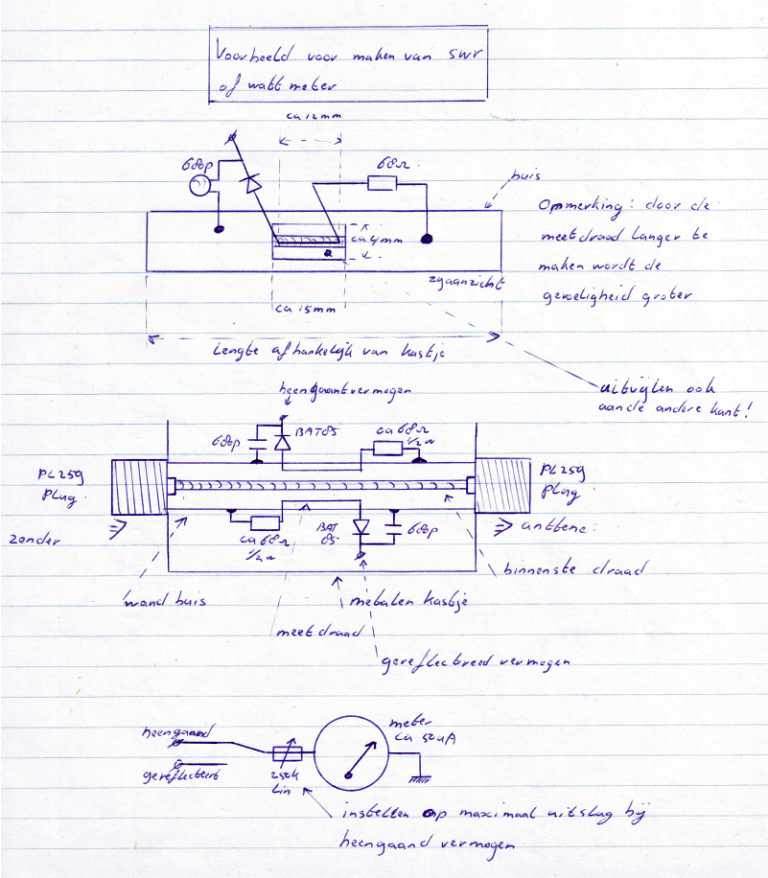 Voorbeeld voor maken van swr
of watt meter
ca 12mm
680p
68Ω
huis
Opmerking: door de
meetdraad langer te
maken wordt de
gevoeligheid groter
ca 4mm
zyaanzicht
ca 15mm
Lengte afhankelijk van kastje
uitvijlen ook
aan de andere kant!
heengaantvermogen
680p
BAT85
ca 68Ω
1/2w
PL259
Plug.
PL259
Plug.
zender
ca 68Ω
1/2w
BAT
85
680p
antene:
binnenste draad
wand huis
metalen kastje
meetdraad
gereflecteerd vermogen
heengaand
gereflecteert
250k
Lin
meter
ca 50uA
instellen op maximaal uitslag bij
heengaand vermogen